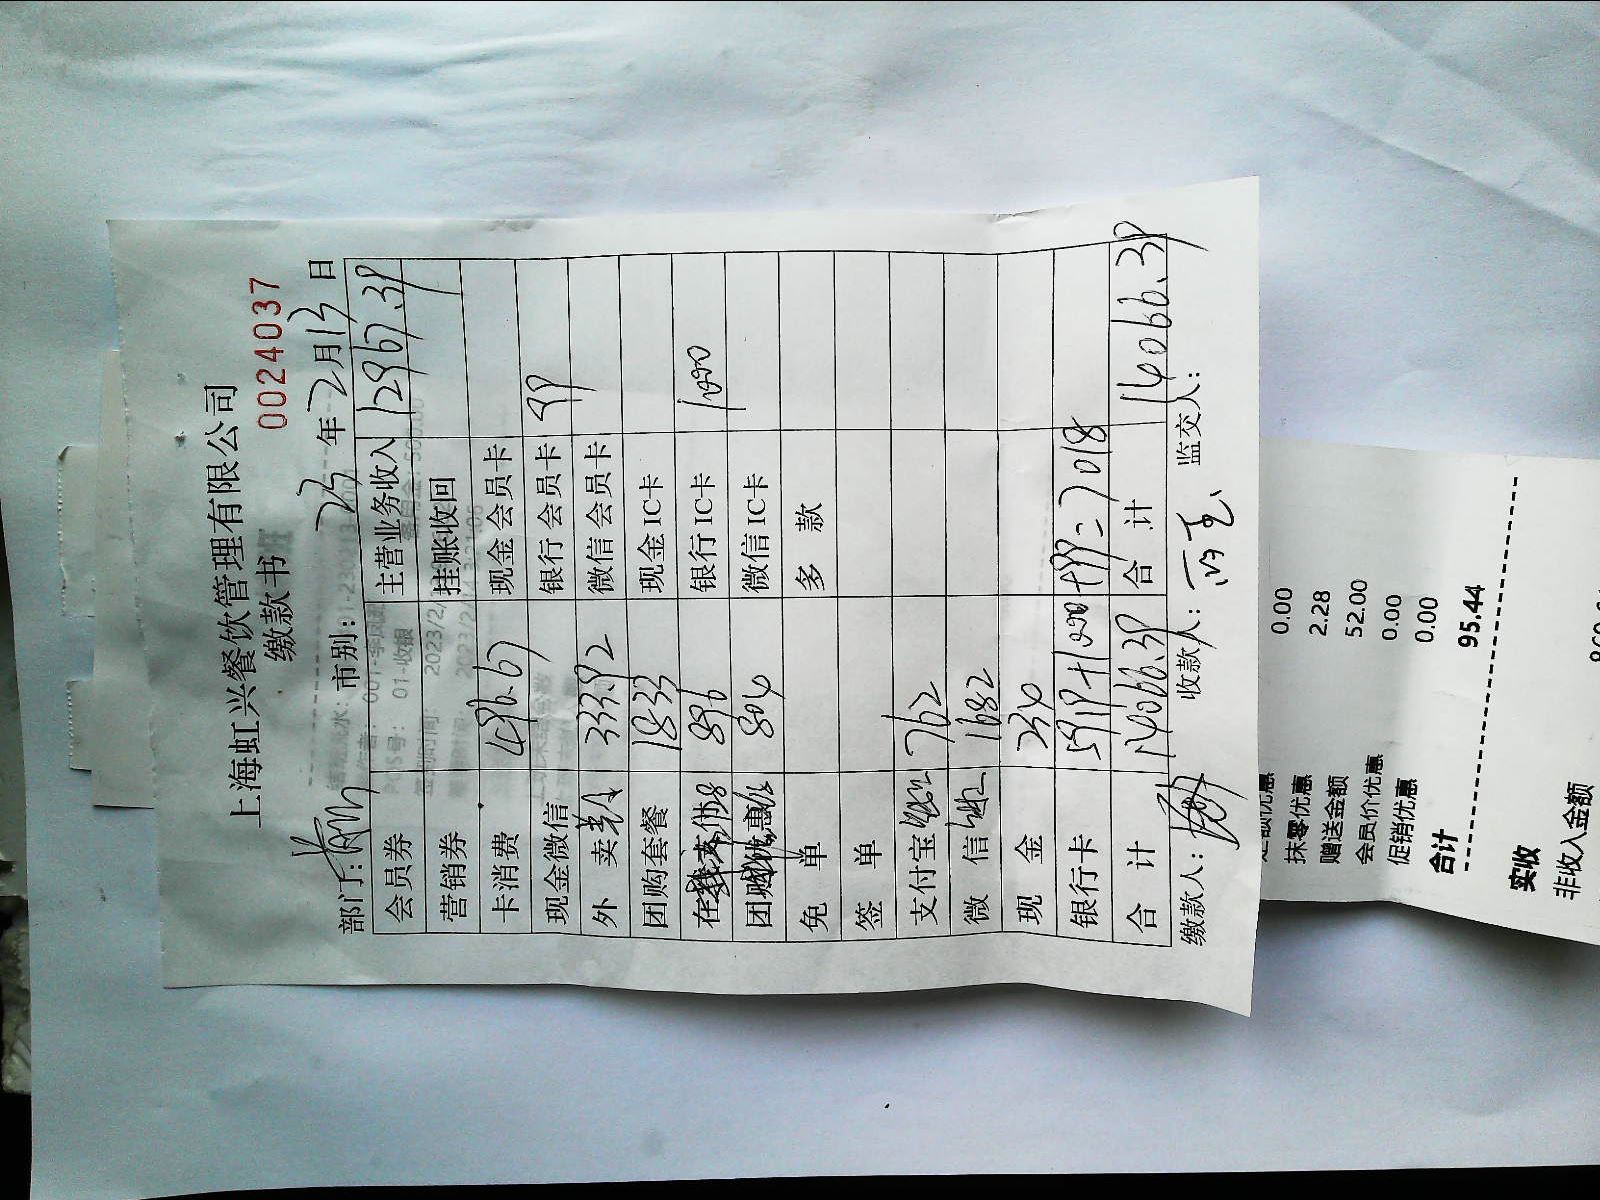 上海虹兴餐饮管理有限公司
缴款书
0024037
部门: 市别: 23年2月13日
会员券 主营业务收入 12967.39
营销券 挂账收回
卡消费 496.67 现金会员卡
现金微信 银行会员卡 99
外卖 333.92 微信会员卡
团购套餐 1833 现金IC卡
896 银行IC卡 1000
804 微信IC卡
免单 多款
签单
支付宝 762
微信 1682
现金 234
银行卡 5919+1000+99=7018
合计 14066.39 合计 14066.39
缴款人: 收款人: 监交人:
0.00
抹零优惠 2.28
赠送金额 52.00
会员价优惠 0.00
促销优惠 0.00
合计 95.44
实收
非收入金额